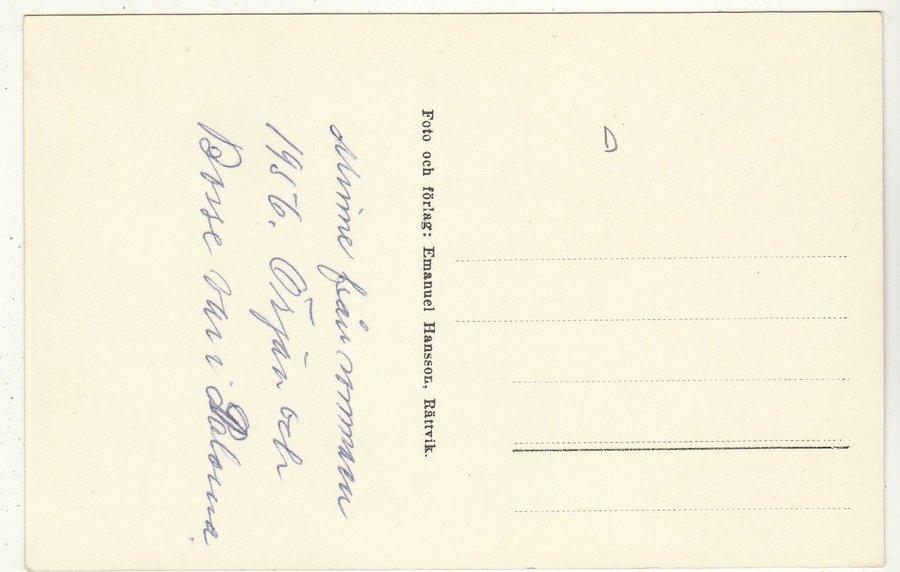 Foto och förlag: Emanuel Hansson, Rättvik.
Minne från sommaren
1956. Örjan och
Bosse var i Dalarna.